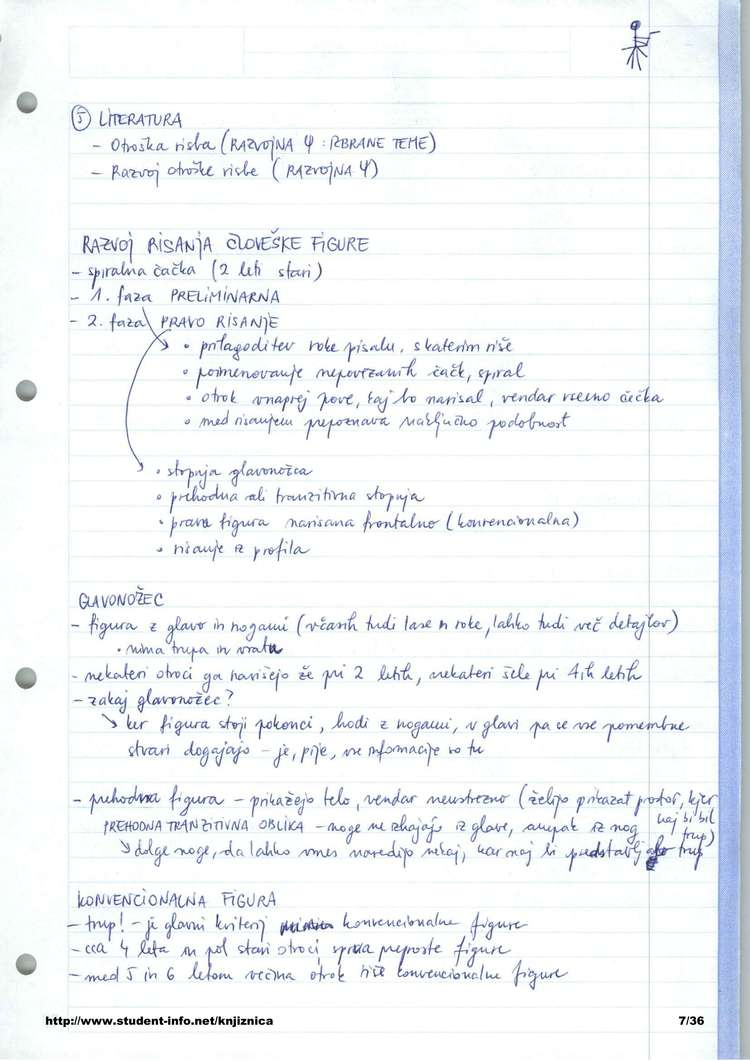 ⑤ LITERATURA
- Otroška risba (RAZVOJNA Ψ : IZBRANE TEME)
- Razvoj otroške risbe (RAZVOJNA Ψ)
RAZVOJ RISANJA ČLOVEŠKE FIGURE
- spiralna čačka (2 leti stari)
- 1. faza PRELIMINARNA
- 2. faza PRAVO RISANJE
• prilagoditev roke pisalu, s katerim riše
• poimenovanje nepovezanih čačk, spiral
• otrok vnaprej pove, kaj bo narisal, vendar vseeno čečka
• med risanjem prepoznava naključno podobnost
• stopnja glavonožca
• prehodna ali tranzitivna stopnja
• prava figura narisana frontalno (konvencionalna)
• risanje iz profila
GLAVONOŽEC
- figura z glavo in nogami (včasih tudi lase in roke, lahko tudi več detajlov)
• nima trupa in vratu
- nekateri otroci ga narišejo že pri 2 letih, nekateri šele pri 4ih letih
- zakaj glavonožec?
ker figura stoji pokonci, hodi z nogami, v glavi pa se vse pomembne
stvari dogajajo - je, pije, vse informacije so tu
- prehodna figura - prikažejo telo, vendar neustrezno (želijo prikazat prostor, kjer
naj bi bil
trup)
PREHODNA TRANZITIVNA OBLIKA - roke ne izhajajo iz glave, ampak iz nog
dolge noge, da lahko vmes naredijo nekaj, kar naj bi predstavljalo trup
KONVENCIONALNA FIGURA
- trup! - je glavni kriterij konvencionalne figure
- cca 4 leta in pol stari otroci, sprva preproste figure
- med 5 in 6 letom večina otrok riše konvencionalne figure
http://www.student-info.net/knjiznica
7/36